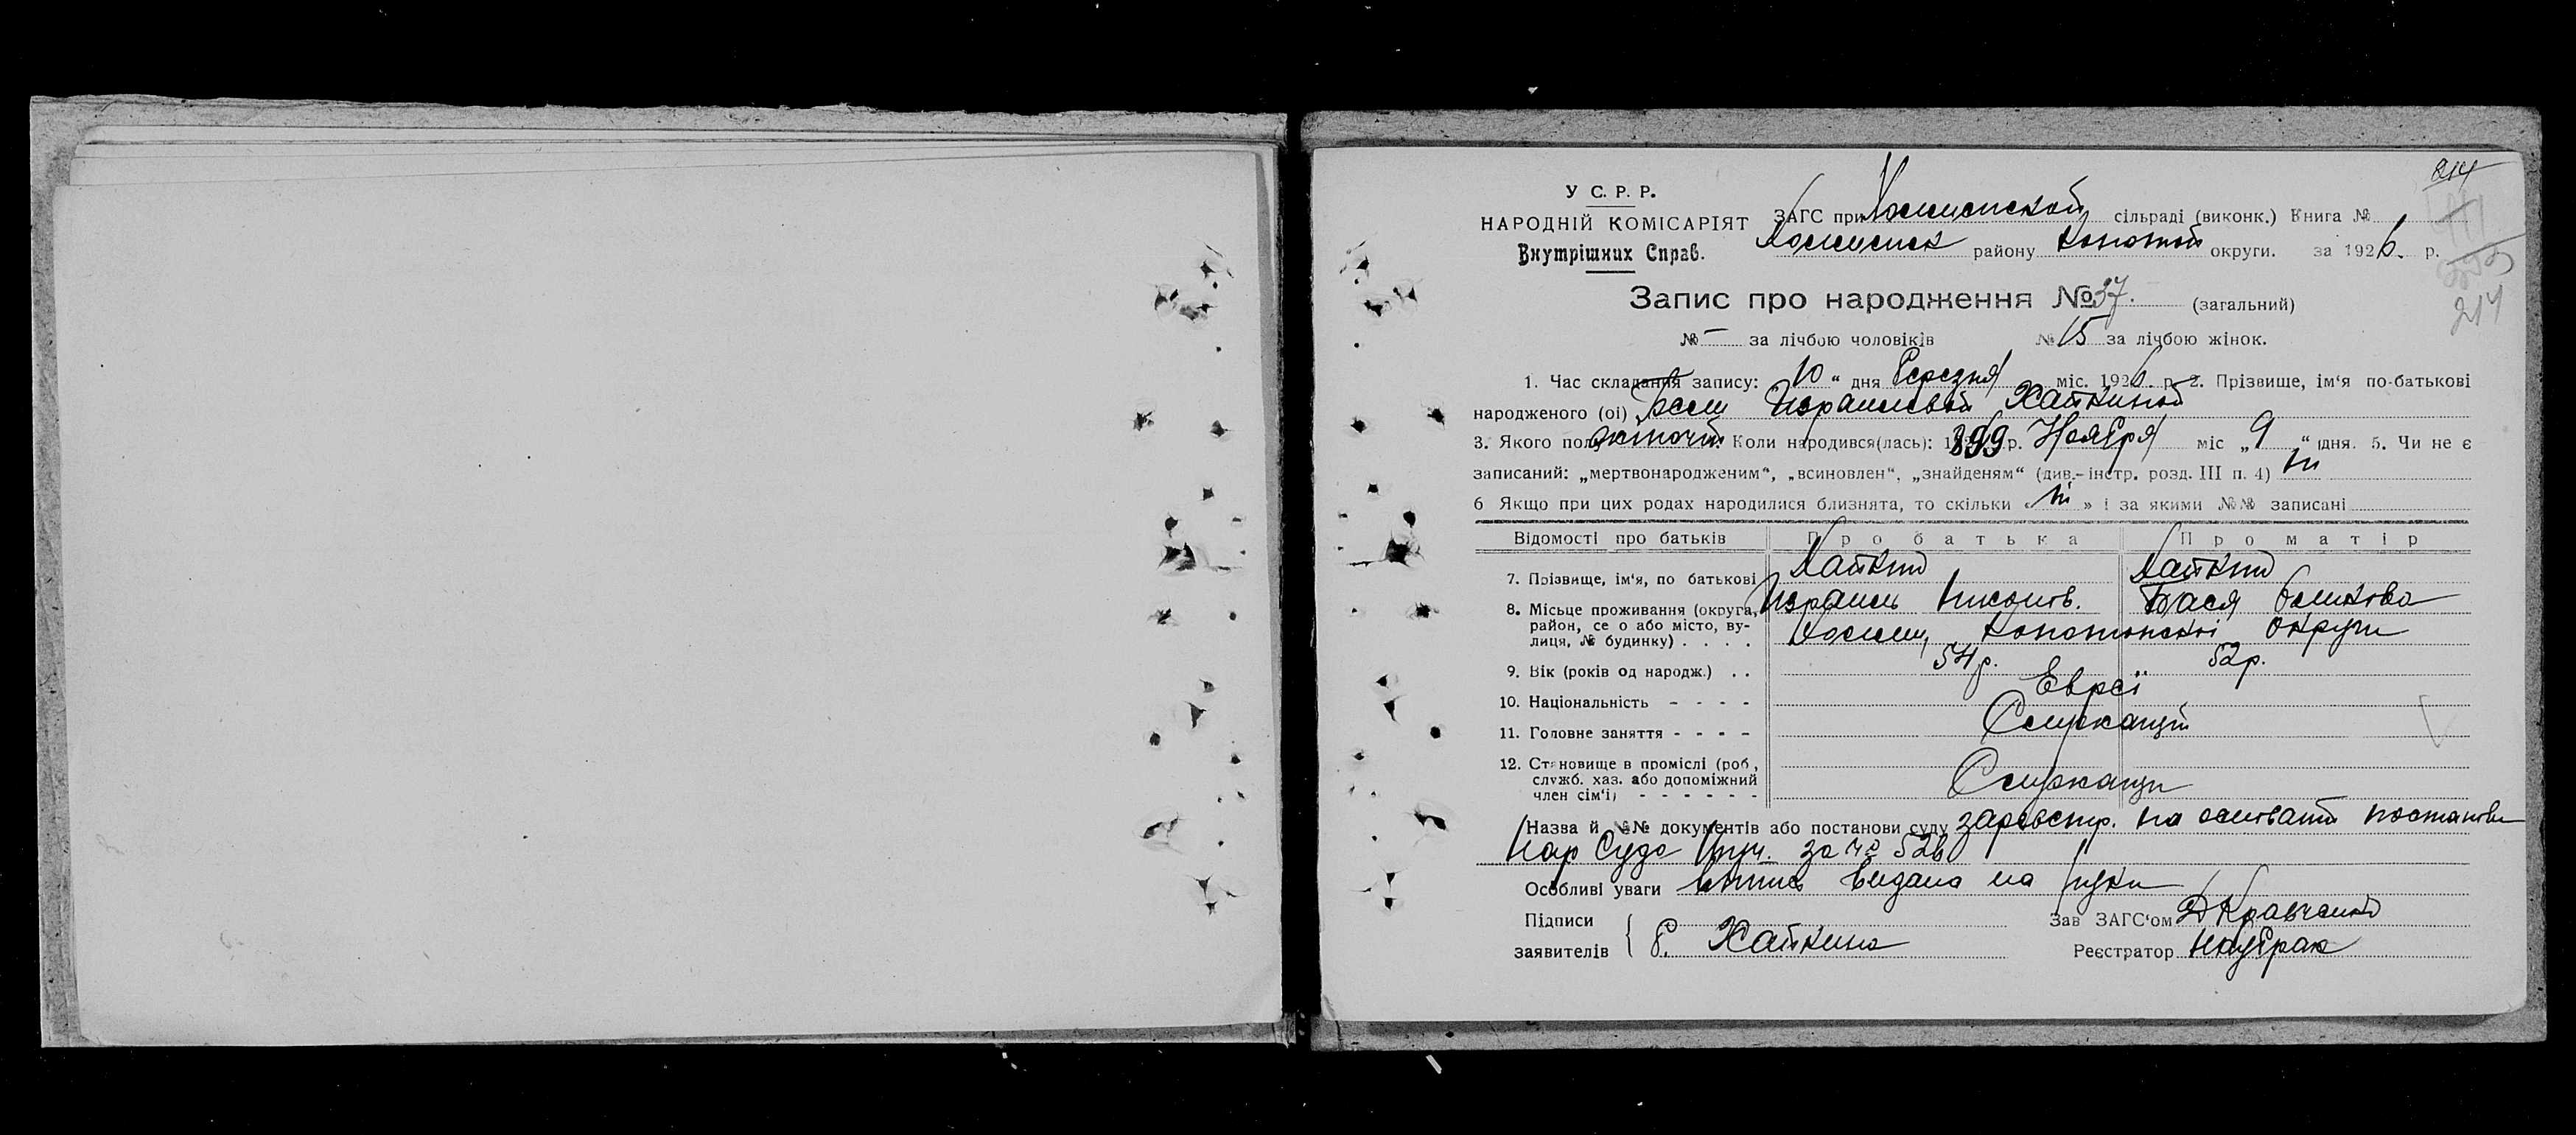 214
У С. Р. Р.
НАРОДНІЙ КОМІСАРІЯТ
Внутрішних Справ.
ЗАГС при сільраді (виконк.) Книга №
району Конотоп округи. за 1926. р.
214
Запис про народження № 37. (загальний)
№ – за лічбою чоловіків № 15 за лічбою жінок.
1. Час складання запису: 10 “ дня Березня міс. 1926 р. 2. Прізвище, ім‘я по-батькові
народженого (ої) Израилевой Хайкиной
3. Якого полу жіночій Коли народився(лась): 1899 р. Ноября міс „ 9 “ дня. 5. Чи не є
записаний: „мертвонародженим“, „всиновлен“, „знайденям“ (див.-інстр. розд. III п. 4) ні
6 Якщо при цих родах народилися близнята, то скільки « ні » і за якими №№ записані
Відомості про батьків Про батька Про матір
7. Прізвище, ім‘я, по батькові Хайкин Хайкин
Израиль Бася
8. Місьце проживання (округа, район, се о або місто, ву-
лиця, № будинку) . . . . Конотопскої округи
9. Вік (років од народж.) . . 54 р. 52 р.
10. Національність - - - - Еврєї
11. Головне заняття - - - - Служащий
12. Становище в проміслі (роб,
служб. хаз. або допоміжний
член сім‘ї) - - - - - - Служащи
Назва й №№ документів або постанови суду зареєстр. на основані постанови
Нар Суда за № 526
Особливі уваги видана на руки
Підписи
заявителів { Б. Хайкина
Зав ЗАГС‘ом Кравченко
Реєстратор